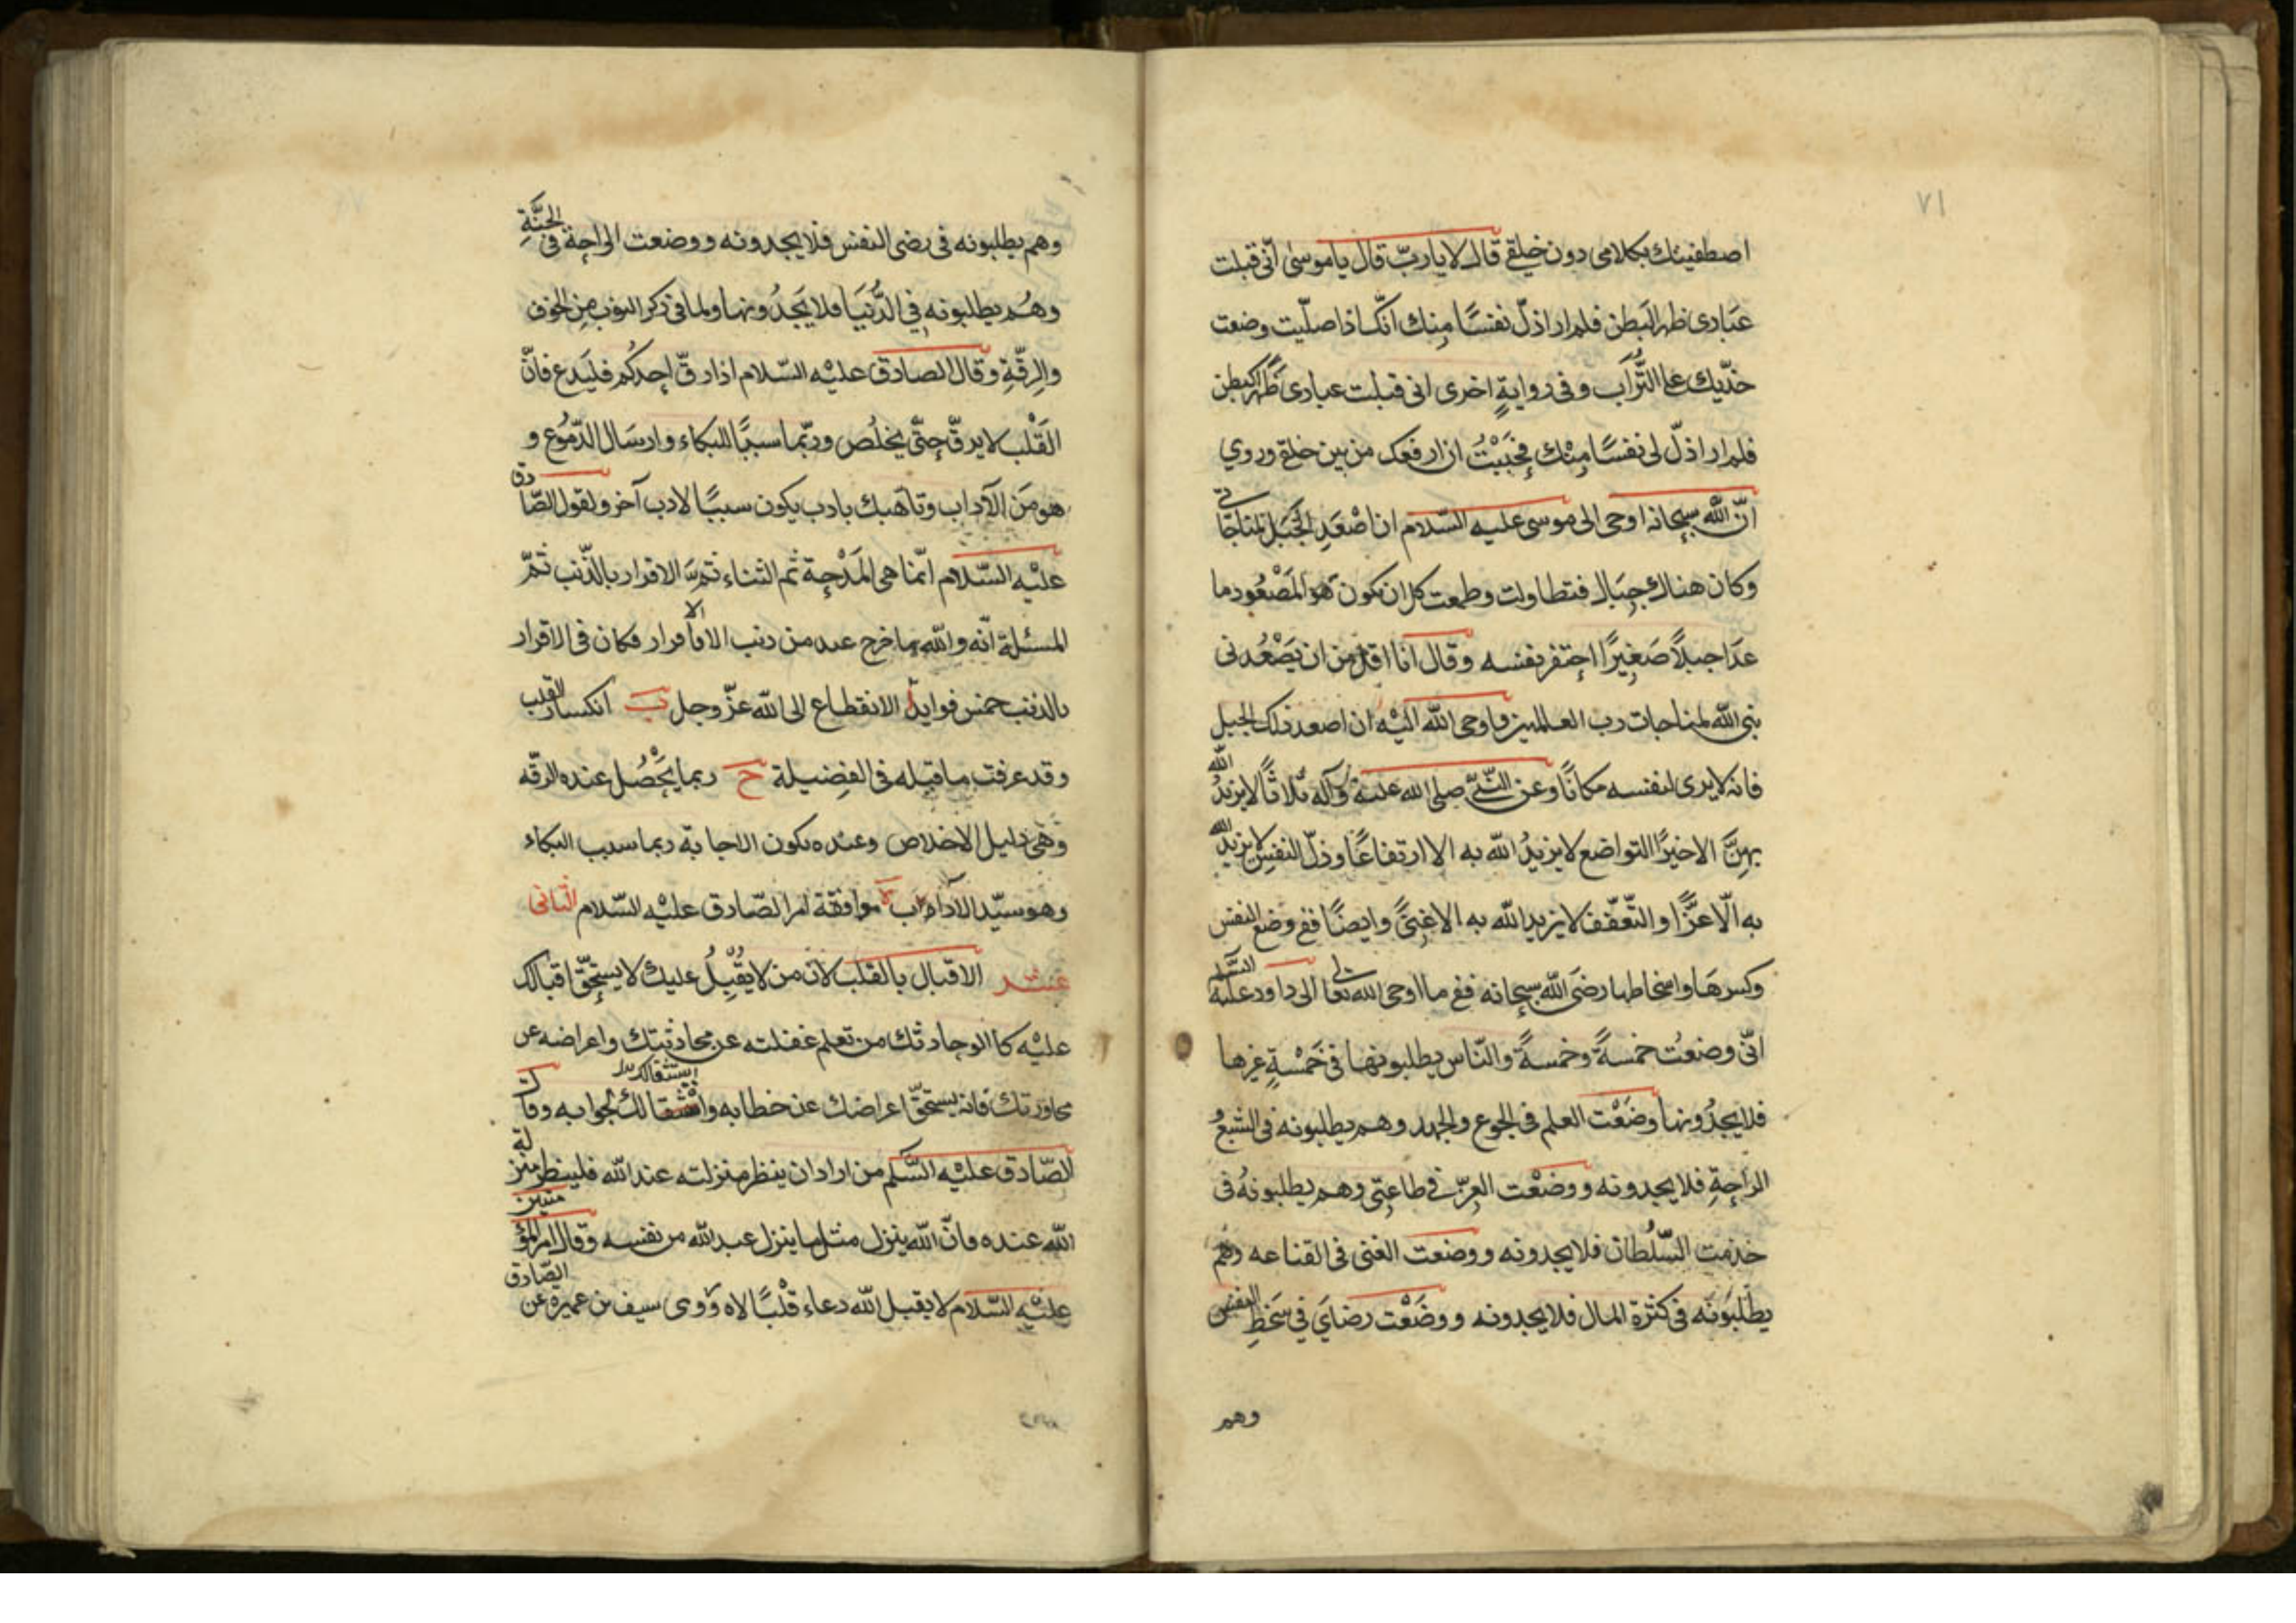 ٧١
اصطفيتك بكلامى دون خلقى قال لا يا ربّ قال يا موسى انّى قبلت
عبادى ظهر البطن فلم ار اذلّ نفسًا مِنك انّك اذا صلّيت وضعت
خدّيك على التُّراب وفى روايةٍ اخرى انى قبلت عبادى ظهرًا لبطن
فلم ار اذلّ لى نفسًا مِنْك فَحَبَبْتُ ان ارفعك من بين خلقى وروي
انّ الله سبحانه اوحى الى موسى عليه السّلام ان اصْعَدِ الجَبَل لمناجاتى
وكان هناك جِبَال فتطاولت وطمعت كل ان يكون هو المَصْعُود ما
عَدَا جبلًا صَغِيرًا احتقر نفسه وقال انا اقل من ان يَصْعُدنى
نبى الله لمناجات رب العالمين فاوحى الله اليْه ان اصعد ذلك الجبل
فانه لا يرى لنفسه مكانًا وعن النّبيّ صلى الله عليه وآله ثلاثًا لا يزيدُ الله
بهنَّ الا خيرًا التواضع لا يزيدُ الله به الا ارتفاعًا وذلّ النفس لا يزيد الله
به الّا عزًّا والتّعفّف لا يزيد الله به الا غِنًى وايضًا ففى وضع النفس
وكسرهَا واسخاطها رضَى الله سبحانه ففى ما اوحى الله تعالى الى داود عليه السّلم
انّى وضعتُ خمسةً وخمسةً والنّاس يطلبونها فى خَمْسةٍ غيرها
فلا يجِدُونها وضَعْت العلم فى الجوع والجهد وهم يطلبونه فى الشبعُ
الراحةِ فلا يجدونه ووضعْت العِزّ فى طاعتِى وهم يطلبونهُ فى
خدمت السّلُطان فلا يجدونه ووضعت الغنى فى القناعه وهُم
يطْلبُونَه فى كثرة المال فلا يجدونه ووضَعْت رضايَ في سَخطِ النفس
وهم
وهم يطلبونه فى رضى النفس فلا يجدونه ووضعت الراحة فى الجنَّةِ
وهُم يطلبونه في الدُّنيَا فلا يَجِدُونها ولما فى ذكر الذنوب مِن الخوف
والرِقّةِ وقال الصادق عليْه السّلام اذا رقّ احدكُم فليَدع فانّ
القَلْب لا يرقّ حتّى يخلُص وربّما سببًا للبكاء وارسَال الدّمُوع و
هو مَن الآداب وناهيك بادب يكون سببًا لادب آخر ولقول الصّادق
عليْه السّلام انّما هى المَدْحة ثم الثناء ثمّ الاقرار بالذّنب ثمّ
المسئلة انّه والله ما خرج عبد من ذنب الا بالاقرار فكان فى الاقرار
بالذنب خمس فوايد ا الانقطاع الى الله عزّ وجل ب انكسار القلب
وقد عرفت ما قبله فى الفضيلة ح ربما يَحْصُل عنده الرقّه
وَهى دليل الاخلاص وعنده تكون الاجابة ربما سبب البكاء
وهو سيّد الآداب موافقة امر الصّادق عليْه السّلام الثانى
عشر الاقبال بالقلب لان من لا يقْبِلُ عليك لا يستحِقّ اقبالك
عليْه كما لو حادثك من تعلم غفلته عن محادثتك واعراضه عن
محاورتك فانه يستحقّ اعراضك عن خطابه واستثقالك لجوابه وقال
الصّادق عليْه السّلم من اراد ان ينظر منزلته عند الله فلينظر منزلة
الله عنده فانّ الله ينزل مثل ما ينزل عبد الله من نفسه وقال امير المؤمنين
عليْه السّلام لا يقبل الله دعاء قلْبًا لاه وروى سيف بن عميره عن الصّادق